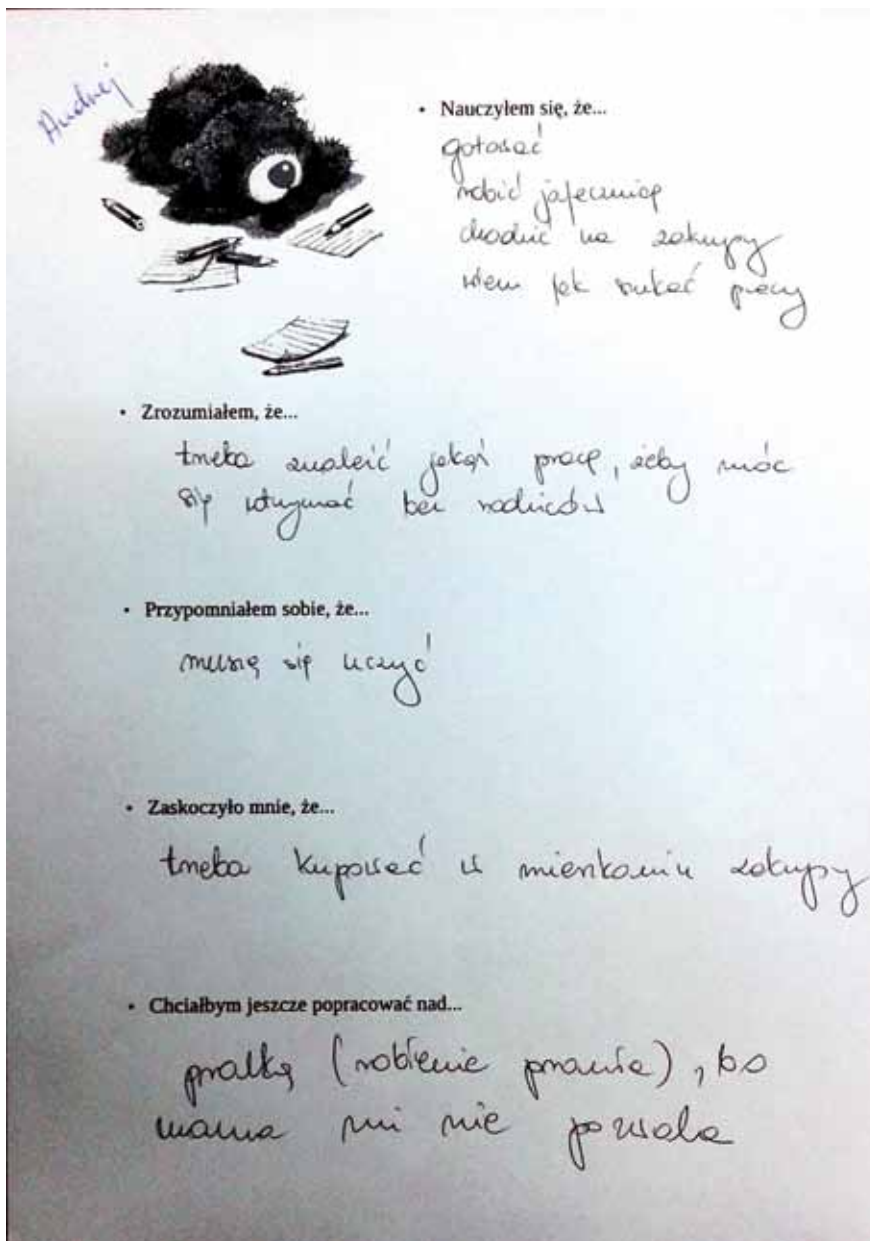 Andrzej
• Nauczyłem się, że...
gotować
robić jajecznicę
chodzić na zakupy
wiem jak szukać pracy
• Zrozumiałem, że...
trzeba znaleźć jakąś pracę, żeby móc
się utrzymać bez rodziców
• Przypomniałem sobie, że...
muszę się uczyć
• Zaskoczyło mnie, że...
trzeba kupować w mieszkaniu zakupy
• Chciałbym jeszcze popracować nad...
pralką (robienie prania), bo
mama mi nie pozwala